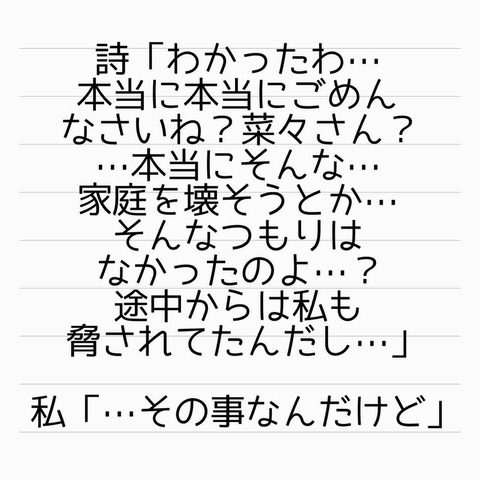 詩「わかったわ…
本当に本当にごめん
なさいね？菜々さん？
…本当にそんな…
家庭を壊そうとか…
そんなつもりは
なかったのよ…？
途中からは私も
脅されてたんだし…」
私「…その事なんだけど」